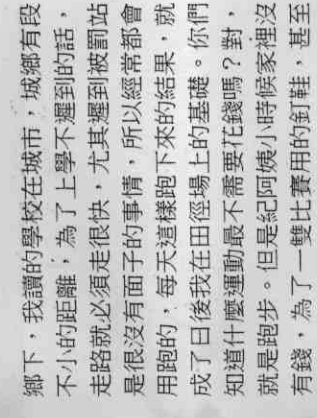 鄉下，我讀的學校在城市，城鄉有段
不小的距離；為了上學不遲到的話，
走路就必須走很快，尤其遲到被罰站
是很沒有面子的事情，所以經常都會
用跑的，每天這樣跑下來的結果，就
成了日後我在田徑場上的基礎。你們
知道什麼運動最不需要花錢嗎？對，
就是跑步。但是紀阿姨小時候家裡沒
有錢，為了一雙比賽用的釘鞋，甚至